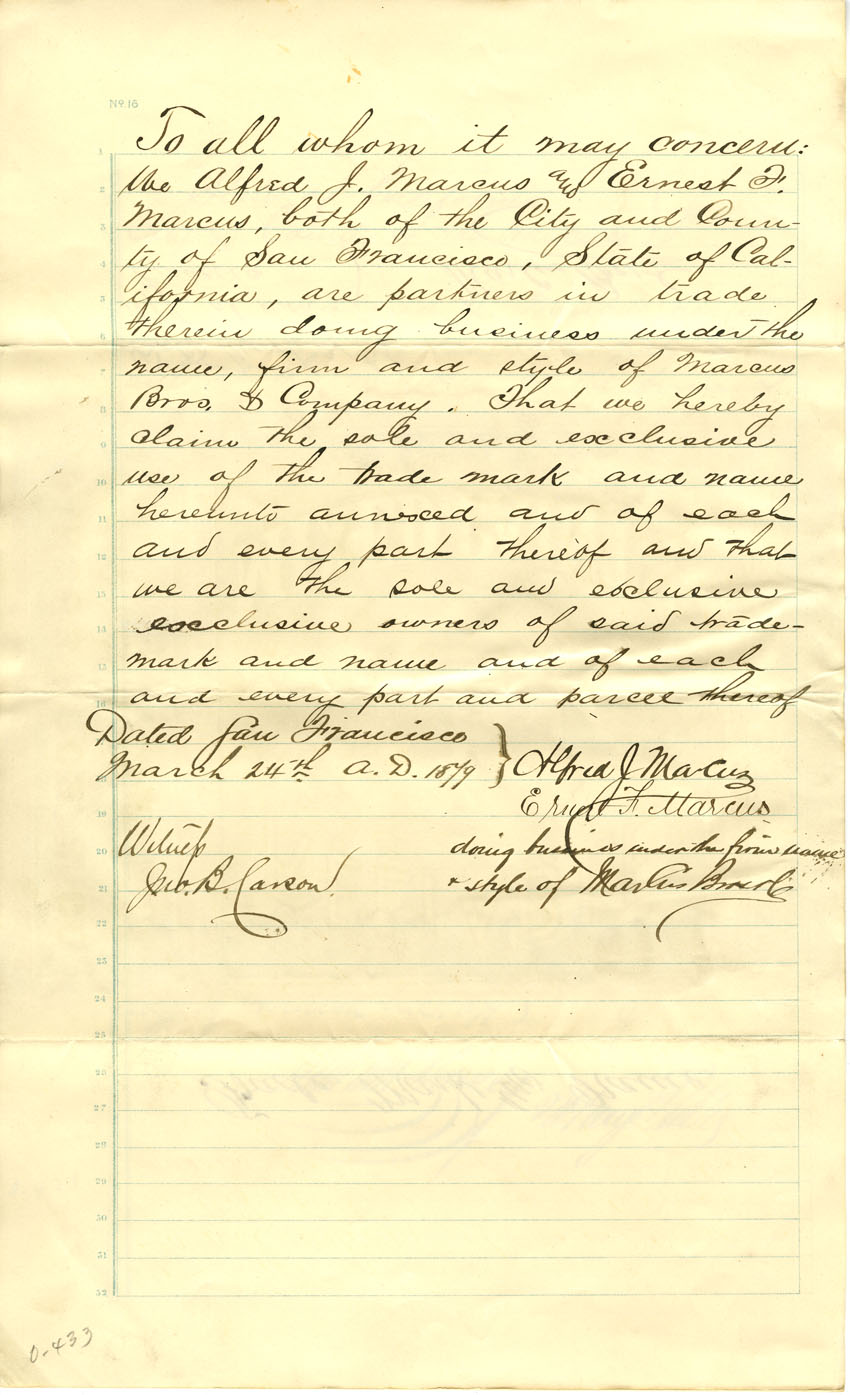 No. 16
To all whom it may concern:
We Alfred J. Marcus and Ernest F.
Marcus, both of the City and Coun-
ty of San Francisco, State of Cal-
ifornia, are partners in trade
therein doing business under the
name, firm and style of Marcus
Bros. & Company. That we hereby
claim the sole and exclusive
use of the trade mark and name
hereunto annexed and of each
and every part thereof and that
we are the sole and exclusive
exclusive owners of said trade-
mark and name and of each
and every part and parcel thereof
Dated San Francisco
March 24th A.D. 1879 } Alfred J Marcus
Ernest F. Marcus
Witness
doing business under the firm name
Jno. B. Carson
& style of Marcus Bros & Co
1
2
3
4
5
6
7
8
9
10
11
12
13
14
15
16
18
19
20
21
22
23
24
25
26
27
28
29
30
31
32
0-433